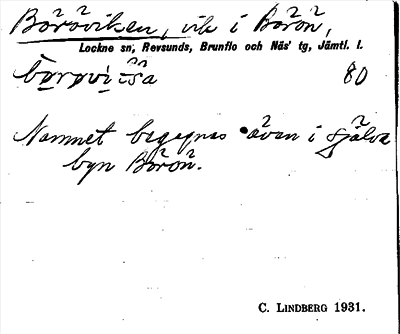 Boröviken, vik i Börön,
Lockne sn, Revsunds, Brunflo och Näs' tg, Jämtl. l.
80
Namnet begagnas även i själva
byn Börön.
C. LINDBERG 1931.